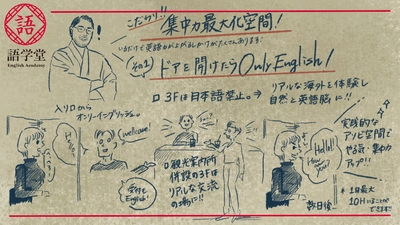 語
語学堂
English Academy
こだわり!!
集中力最大化空間!
いるだけで英語力が上がるしかけがたくさんあります!
その1
ドアを開けたらOnly English!
□ 3Fは日本語禁止。→
リアルな海外を体験し
自然と英語脳に!!
入り口から
オンリーイングリッシュ。
Hello!
welcome!
受付も
English!
□観光案内所
併設の3Fは
リアルな交流
の場に!!
実践的な
アソビ空間で
やる気・集中力
アップ!!
Hello!!
How are you?
数日後…
*1日最大
10Hいることが
できます!